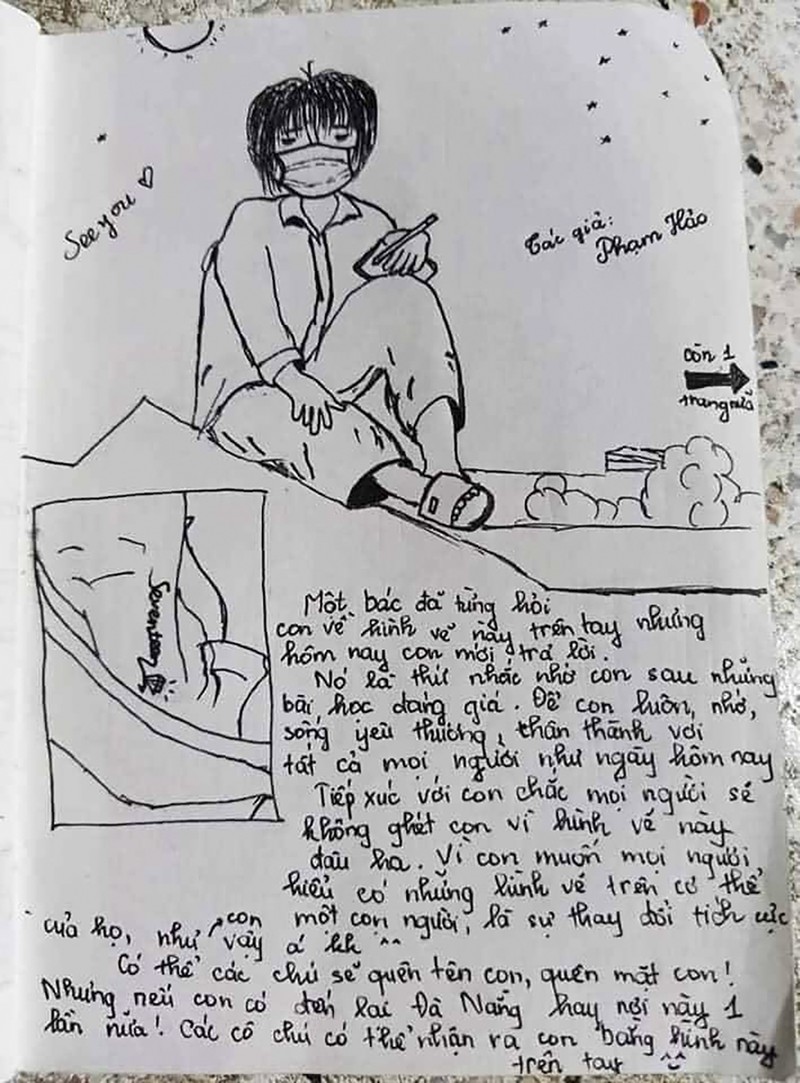 See you
Tác giả:
Phạm Hảo
còn 1
trang nữa
Seventeen
Một bác đã từng hỏi
con về hình vẽ này trên tay nhưng
hôm nay con mới trả lời.
Nó là thứ nhắc nhở con sau những
bài học đáng giá. Để con luôn, nhớ,
sống yêu thương, chân thành với
tất cả mọi người như ngày hôm nay
Tiếp xúc với con chắc mọi người sẽ
không ghét con vì hình vẽ này
đâu ha. Vì con muốn mọi người
hiểu có những hình vẽ trên cơ thể
một con người, là sự thay đổi tích cực
của họ, như con vậy á hh ^^
Có thể các chú sẽ quên tên con, quên mặt con!
Nhưng nếu con có đến lại Đà Nẵng hay nơi này 1
lần nữa! Các cô chú có thể nhận ra con bằng hình này
trên tay ^^